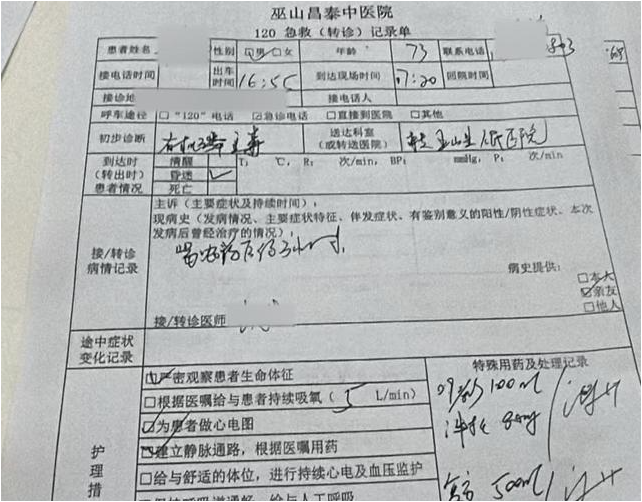 巫山昌泰中医院
120 急救(转诊)记录单
患者姓名 性别 ☑男☐女 年龄 73 联系电话
接电话时间 出车时间 16:55 到达现场时间 17:20 回院时间
接诊地 接电话人
呼车途径 ☐“120”电话 ☑急诊电话 ☐直接到医院 ☐其他
初步诊断 有机磷中毒 送达科室(或转送医院) 医院
到达时(转出时)患者情况 清醒 昏迷 ✓ 死亡 T: ℃, R: 次/min, BP: mmHg, P: 次/min
主诉(主要症状及持续时间):
现病史(发病情况、主要症状特征、伴发症状、有鉴别意义的阳性/阴性症状、本次
发病后曾经治疗的情况):
接/转诊病情记录
喝农药后约 小时
病史提供:
☐本人
☑亲友
☐他人
接/转诊医师
途中症状变化记录
护理措
☑严密观察患者生命体征
☐根据医嘱给与患者持续吸氧( 5 L/min)
☑为患者做心电图
☑建立静脉通路,根据医嘱用药
☐给与舒适的体位,进行持续心电及血压监护
保持呼吸道通畅,给与人工呼吸
特殊用药及处理记录
100ml
500ml